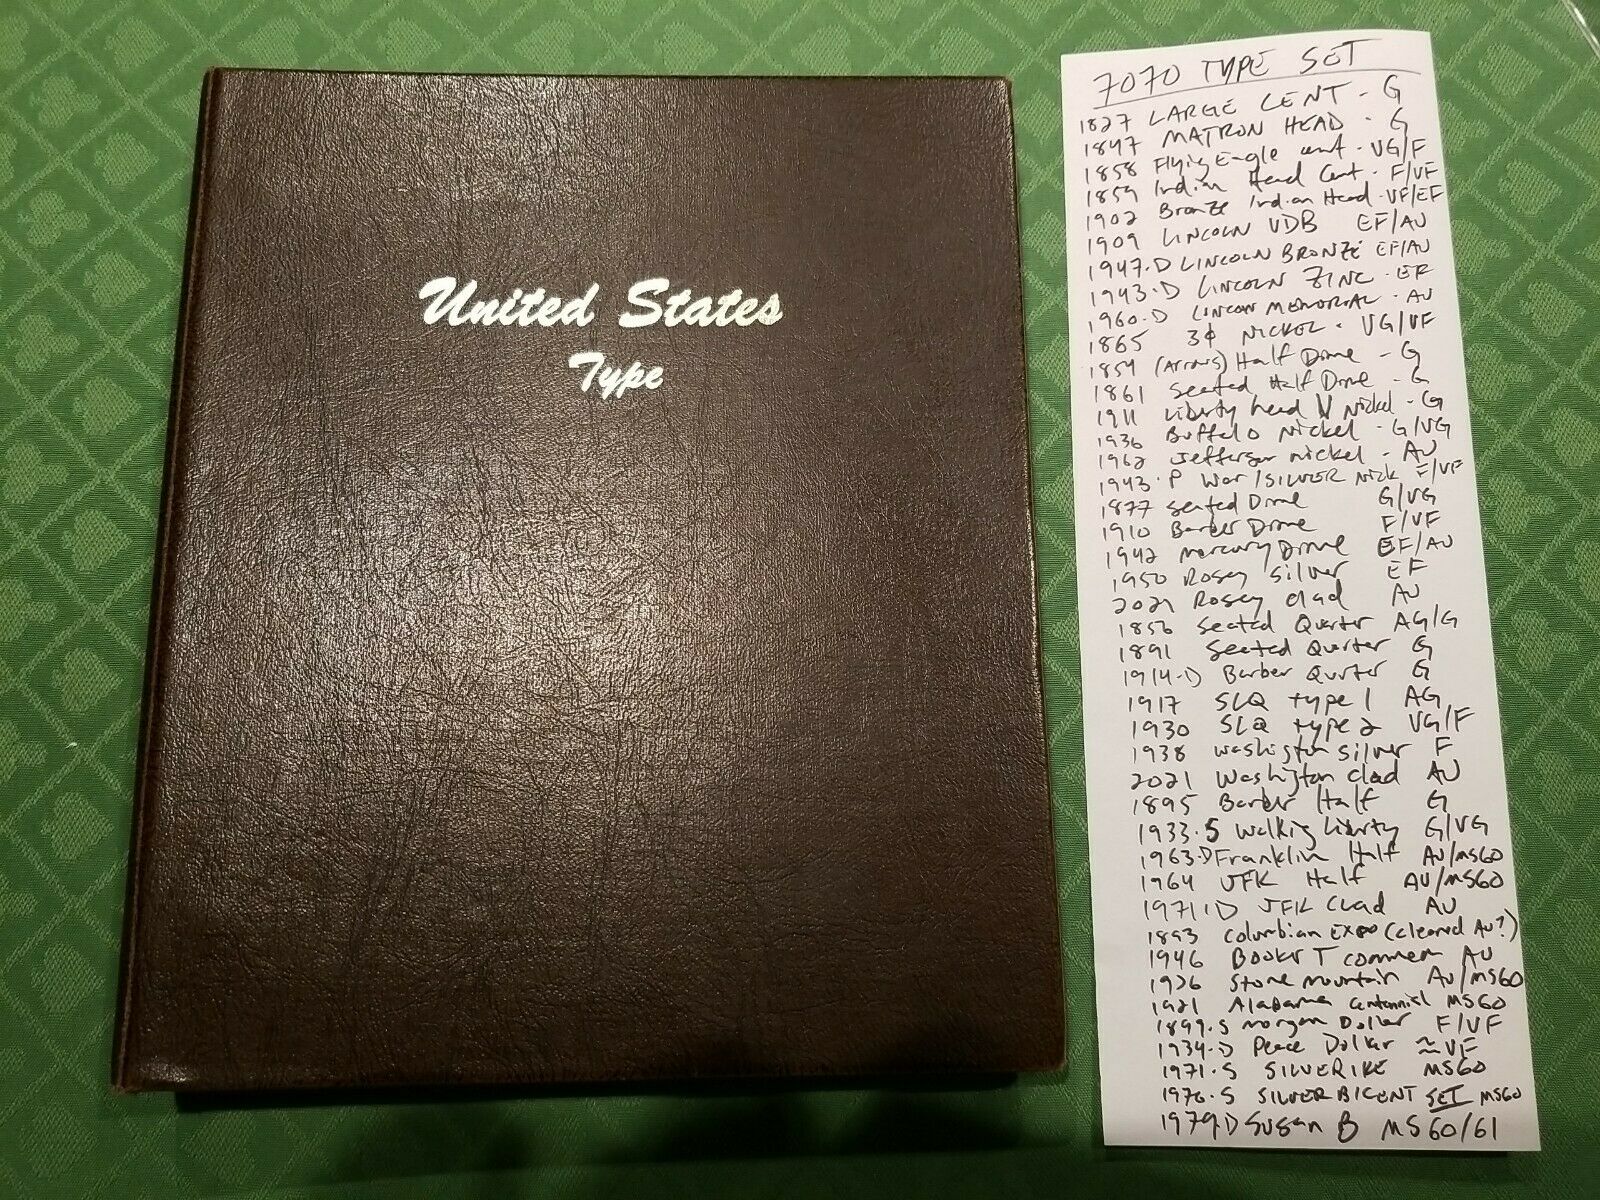 United States
Type
7070 TYPE SET
1827 LARGE CENT - G
1847 MATRON HEAD - G
1858 Flying Eagle cent - VG/F
1859 Indian Head Cent - F/VF
1902 Bronze Indian Head - VF/EF
1909 LINCOLN VDB EF/AU
1947-D LINCOLN BRONZE EF/AU
1943-D LINCOLN ZINC - EF
1960-D LINCOLN MEMORIAL - AU
1865 3¢ NICKEL - VG/VF
1859 (Arrows) Half Dime - G
1861 Seated Half Dime - G
1911 Liberty head V Nickel - G
1936 Buffalo Nickel - G/VG
1962 Jefferson nickel - AU
1943-P War/SILVER Nick F/VF
1877 Seated Dime G/VG
1910 Barber Dime F/VF
1942 mercury Dime EF/AU
1950 Rosey silver EF
2021 Rosey clad AU
1856 Seated Quarter AG/G
1891 Seated Quarter G
1914-D Barber Quarter G
1917 SLQ type 1 AG
1930 SLQ type 2 VG/F
1938 Washington silver F
2021 Washington clad AU
1895 Barber Half G
1933-S Walking Liberty G/VG
1963-D Franklin Half AU/MS60
1964 JFK Half AU/MS60
1971-D JFK Clad AU
1893 Columbian EXPO (cleaned AU?)
1946 BOOKER T commem AU
1926 Stone mountain AU/MS60
1921 Alabama centennial MS60
1899-S Morgan Dollar F/VF
1934-D Peace Dollar ≈VF
1971-S SILVER IKE MS60
1976-S SILVER BICENT SET MS60
1979D Susan B MS60/61